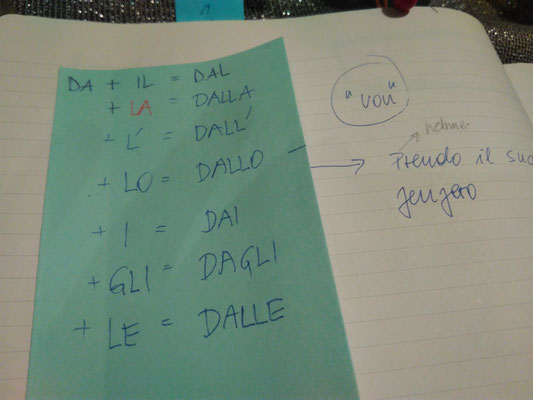 DA + IL = DAL
+ LA = DALLA
+ L' = DALL'
+ LO = DALLO
+ I = DAI
+ GLI = DAGLI
+ LE = DALLE
"von"
nehme
Prendo il suc